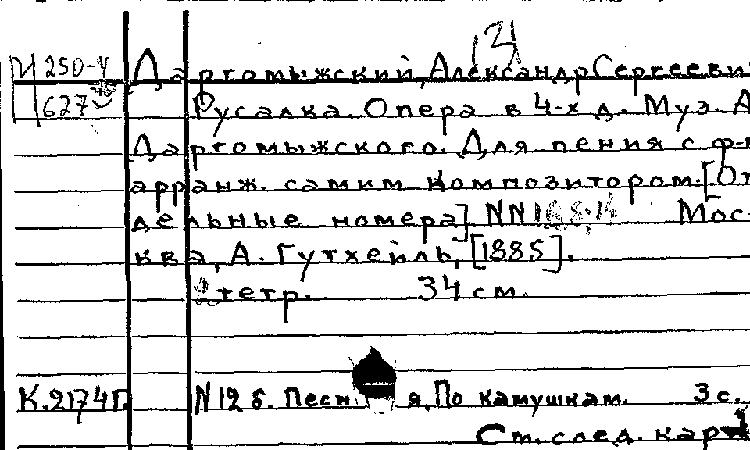 И 250-У Даргомыжский, Александр Сергеевич
627 Русалка. Опера в 4-х д. Муз. А.
Даргомыжского. Для пения с ф-п
арранж. самим композитором. [От
дельные номера] NN Мос
ква, А. Гутхейль, [1885].
тетр. 34 см.
К.2174 Г. N 12 б. Песня. По камушкам. 3 с.
См. след. карт